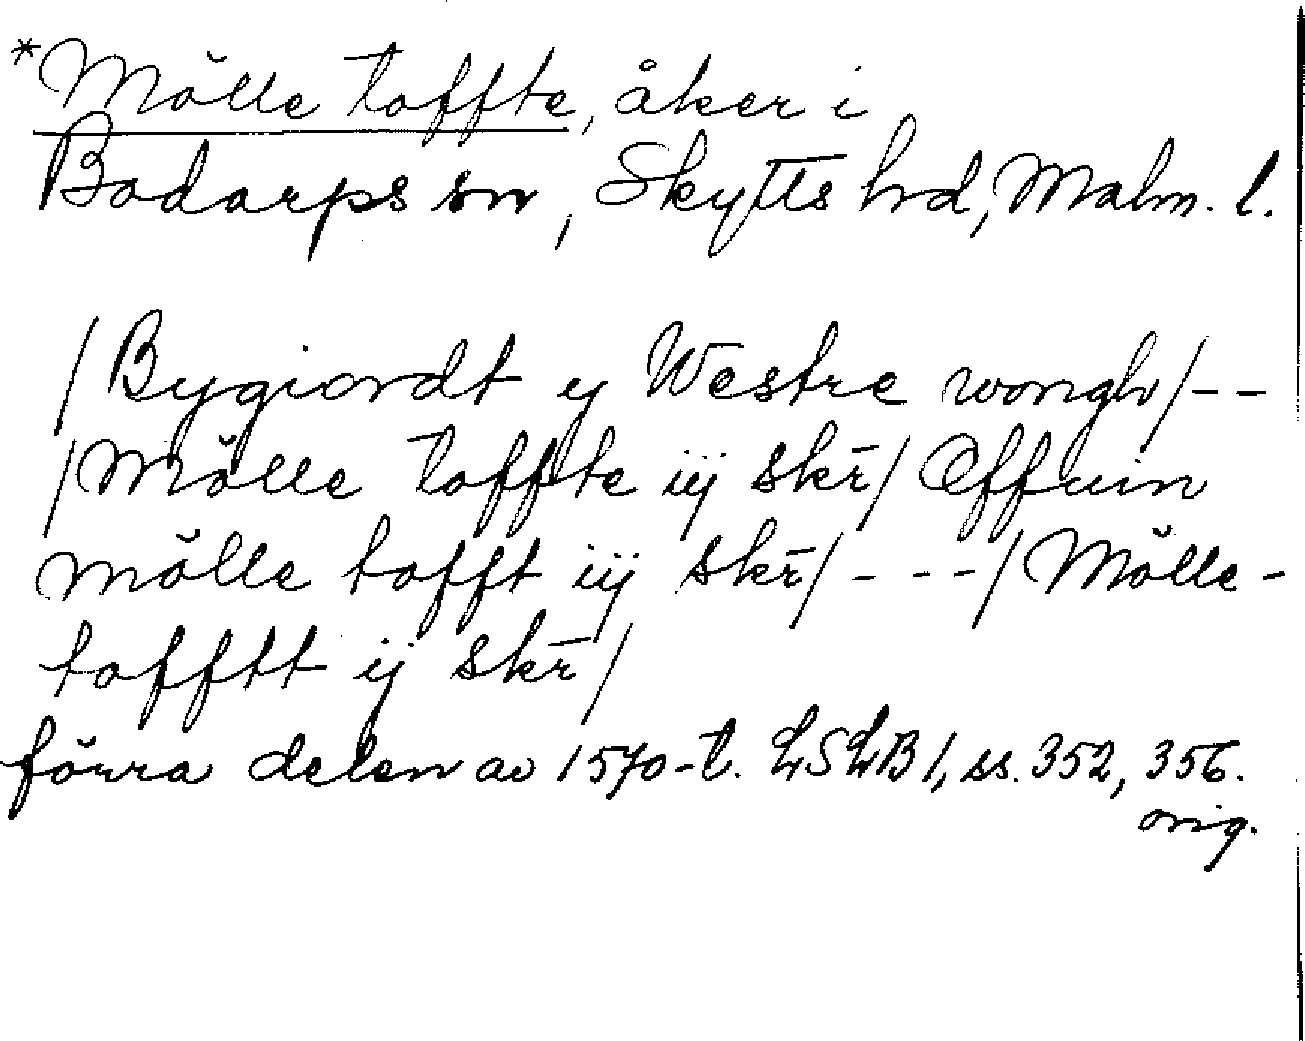 *Mölle toffte, åker i
Bodarps sn, Skytts hd, Malm. l.
/Bygiordt ij Westre wongh/--
/Mölle toffte iij skr̄/ Offuin
mölle tofft iij skr̄/---/Mölle-
tofftt ij skr̄/
förra delen av 1570-t. LSLB 1, ss. 352, 356.
orig.